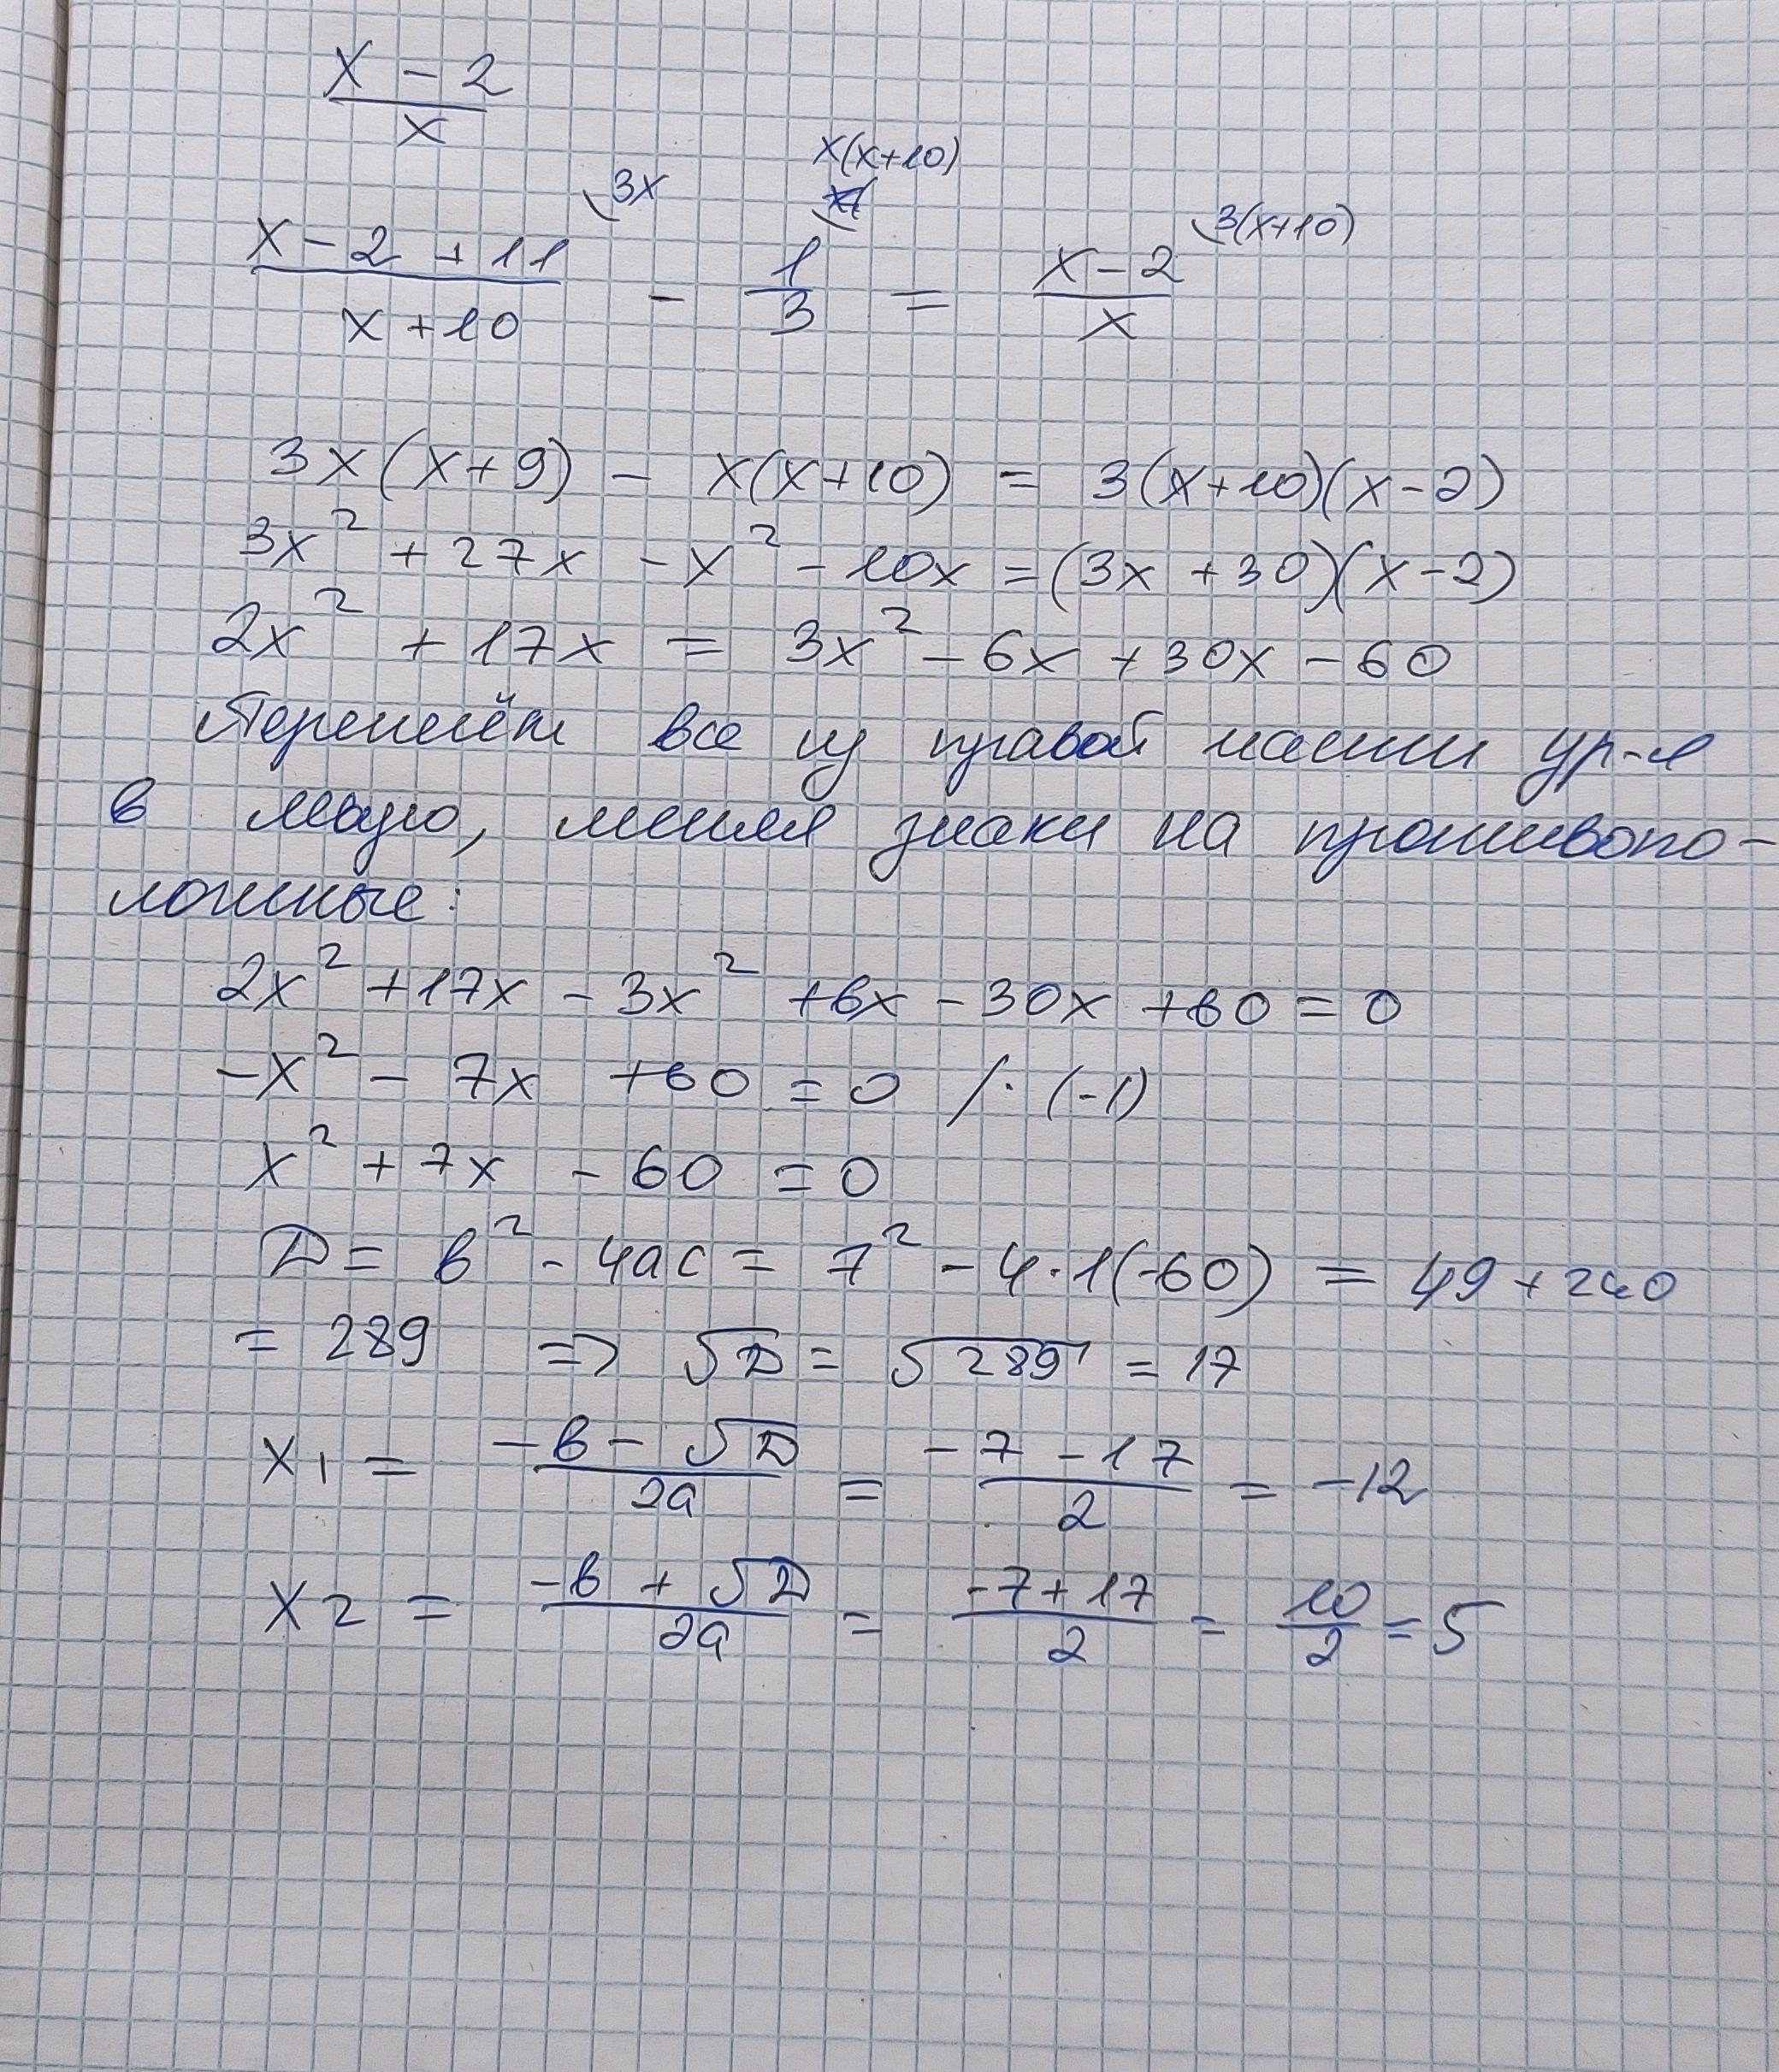 x - 2
x
3x x(x+10) 3(x+10)
x - 2 + 11 / x + 10 - 1/3 = x - 2 / x
3x(x+9) - x(x+10) = 3(x+10)(x-2)
3x² + 27x - x² - 10x = (3x + 30)(x-2)
2x² + 17x = 3x² - 6x + 30x - 60
Перенесём все из правой части ур-я
в левую, меняя знаки на противопо-
ложные:
2x² + 17x - 3x² + 6x - 30x + 60 = 0
-x² - 7x + 60 = 0 /·(-1)
x² + 7x - 60 = 0
D = b² - 4ac = 7² - 4·1(-60) = 49 + 240
= 289 => √D = √289 = 17
x1 = -b - √D / 2a = -7 - 17 / 2 = -12
x2 = -b + √D / 2a = -7 + 17 / 2 = 10/2 = 5